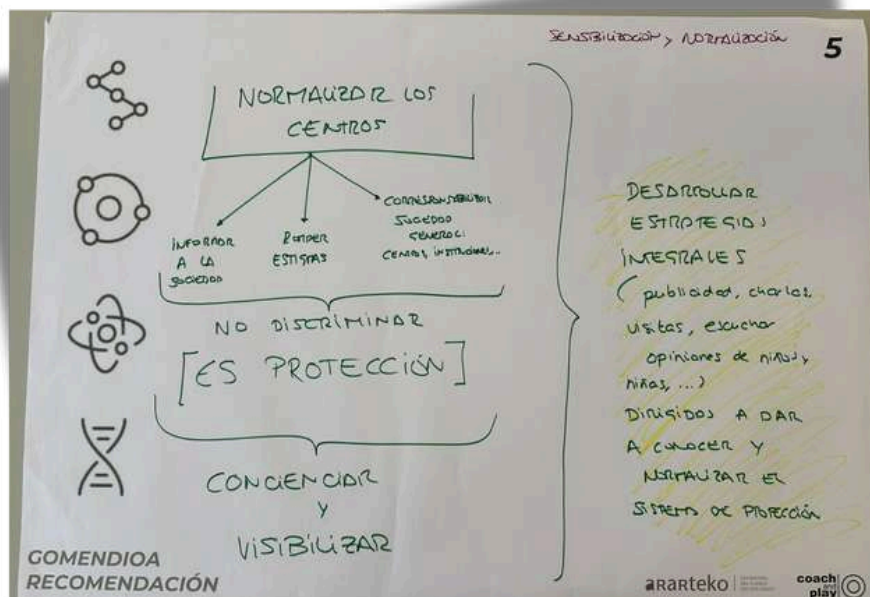 SENSIBILIZACIÓN y NORMALIZACIÓN
5
NORMALIZAR LOS
CENTROS
INFORMAR
A LA
SOCIEDAD
ROMPER
ESTIGMAS
CORRESPONSABILIZAR
SOCIEDAD
GENERAL:
CENTROS, INSTITUCIONES...
NO DISCRIMINAR
[ES PROTECCIÓN]
CONCIENCIAR
Y
VISIBILIZAR
DESARROLLAR
ESTRATEGIAS
INTEGRALES
( publicidad, charlas,
visitas, escuchar
opiniones de niños y
niñas, ...)
DIRIGIDOS A DAR
A CONOCER Y
NORMALIZAR EL
SISTEMA DE PROTECCIÓN
GOMENDIOA
RECOMENDACIÓN
ARARTEKO
coach
and
play